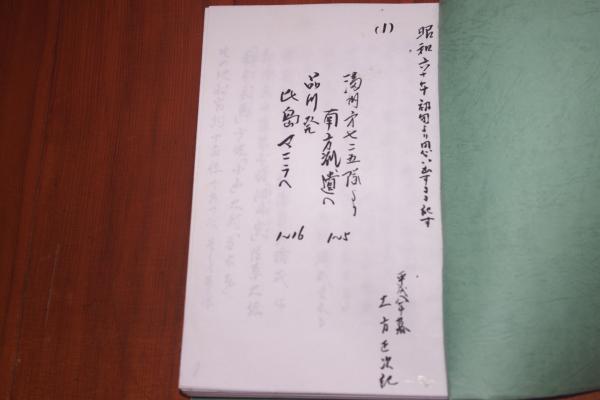 昭和六十年初旬より思い出するまゝ記す
(1)
満州第七二五隊より
南方派遣へ 1~5
品川発
比島マニラへ 1~16
平成八年春
土方正次記